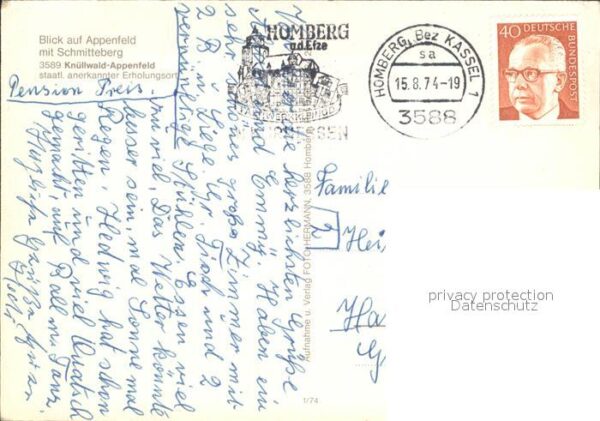 Blick auf Appenfeld
mit Schmitteberg
3589 Knüllwald-Appenfeld
staatl. anerkannter Erholungsort
Pension Preis.
HOMBERG
a.d. Efze
HESSEN
HOMBERG, Bez KASSEL 1
sa
15.8.74-19
3588
40
DEUTSCHE
BUNDESPOST
die herzlichsten Grüße
und Emmy. Haben ein
sehr schönes großes Zimmer mit
2 B. u. Liege. Gr. Tisch und 2
vernünftige Stühlen. Essen viel
zu viel. Das Wetter könnte
besser sein, mal Sonne mal
Regen, Hedwig hat schon
geritten und viel Quatsch
gemacht, auf Ball m. Tanz.
Herzliche Grüße
Aufnahme u. Verlag FOTO-HERMANN, 3588 Homberg
1/74
Familie
2
Hei
Ha
G
privacy protection
Datenschutz